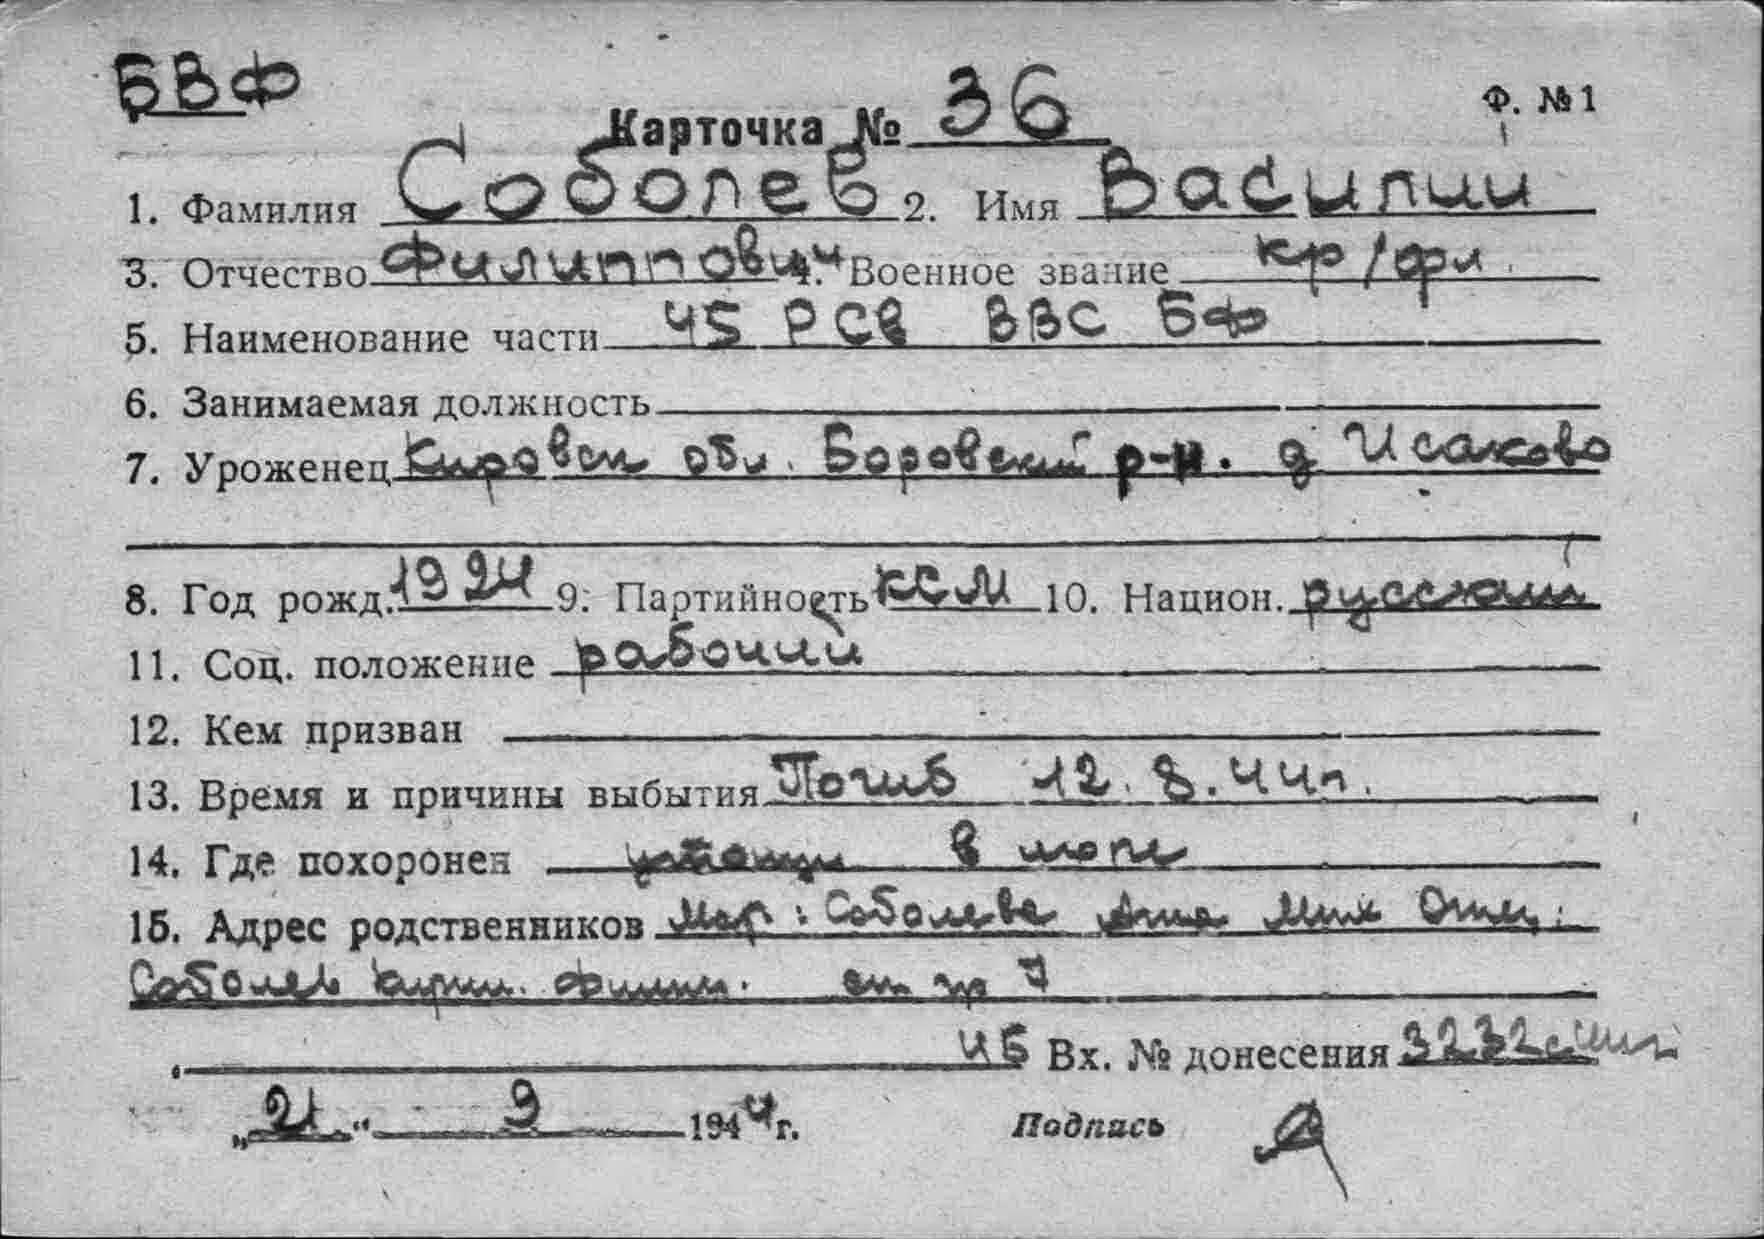 БВФ
Ф. №1
Карточка № 36
1. Фамилия Соболев 2. Имя Василий
3. Отчество Филиппович 4. Военное звание кр/фл.
5. Наименование части 45 РСВ ВВС БФ
6. Занимаемая должность
7. Уроженец Кировск обл. Боровский р-н. д Исаково
8. Год рожд. 1924 9. Партийность КСМ 10. Национ. русский
11. Соц. положение рабочий
12. Кем призван
13. Время и причины выбытия Погиб 12.8.44г.
14. Где похоронен в море
15. Адрес родственников Соболева Анна Мих Отец:
Соболев
Вх. № донесения 3232
„21“ 9 1944г. Подпись